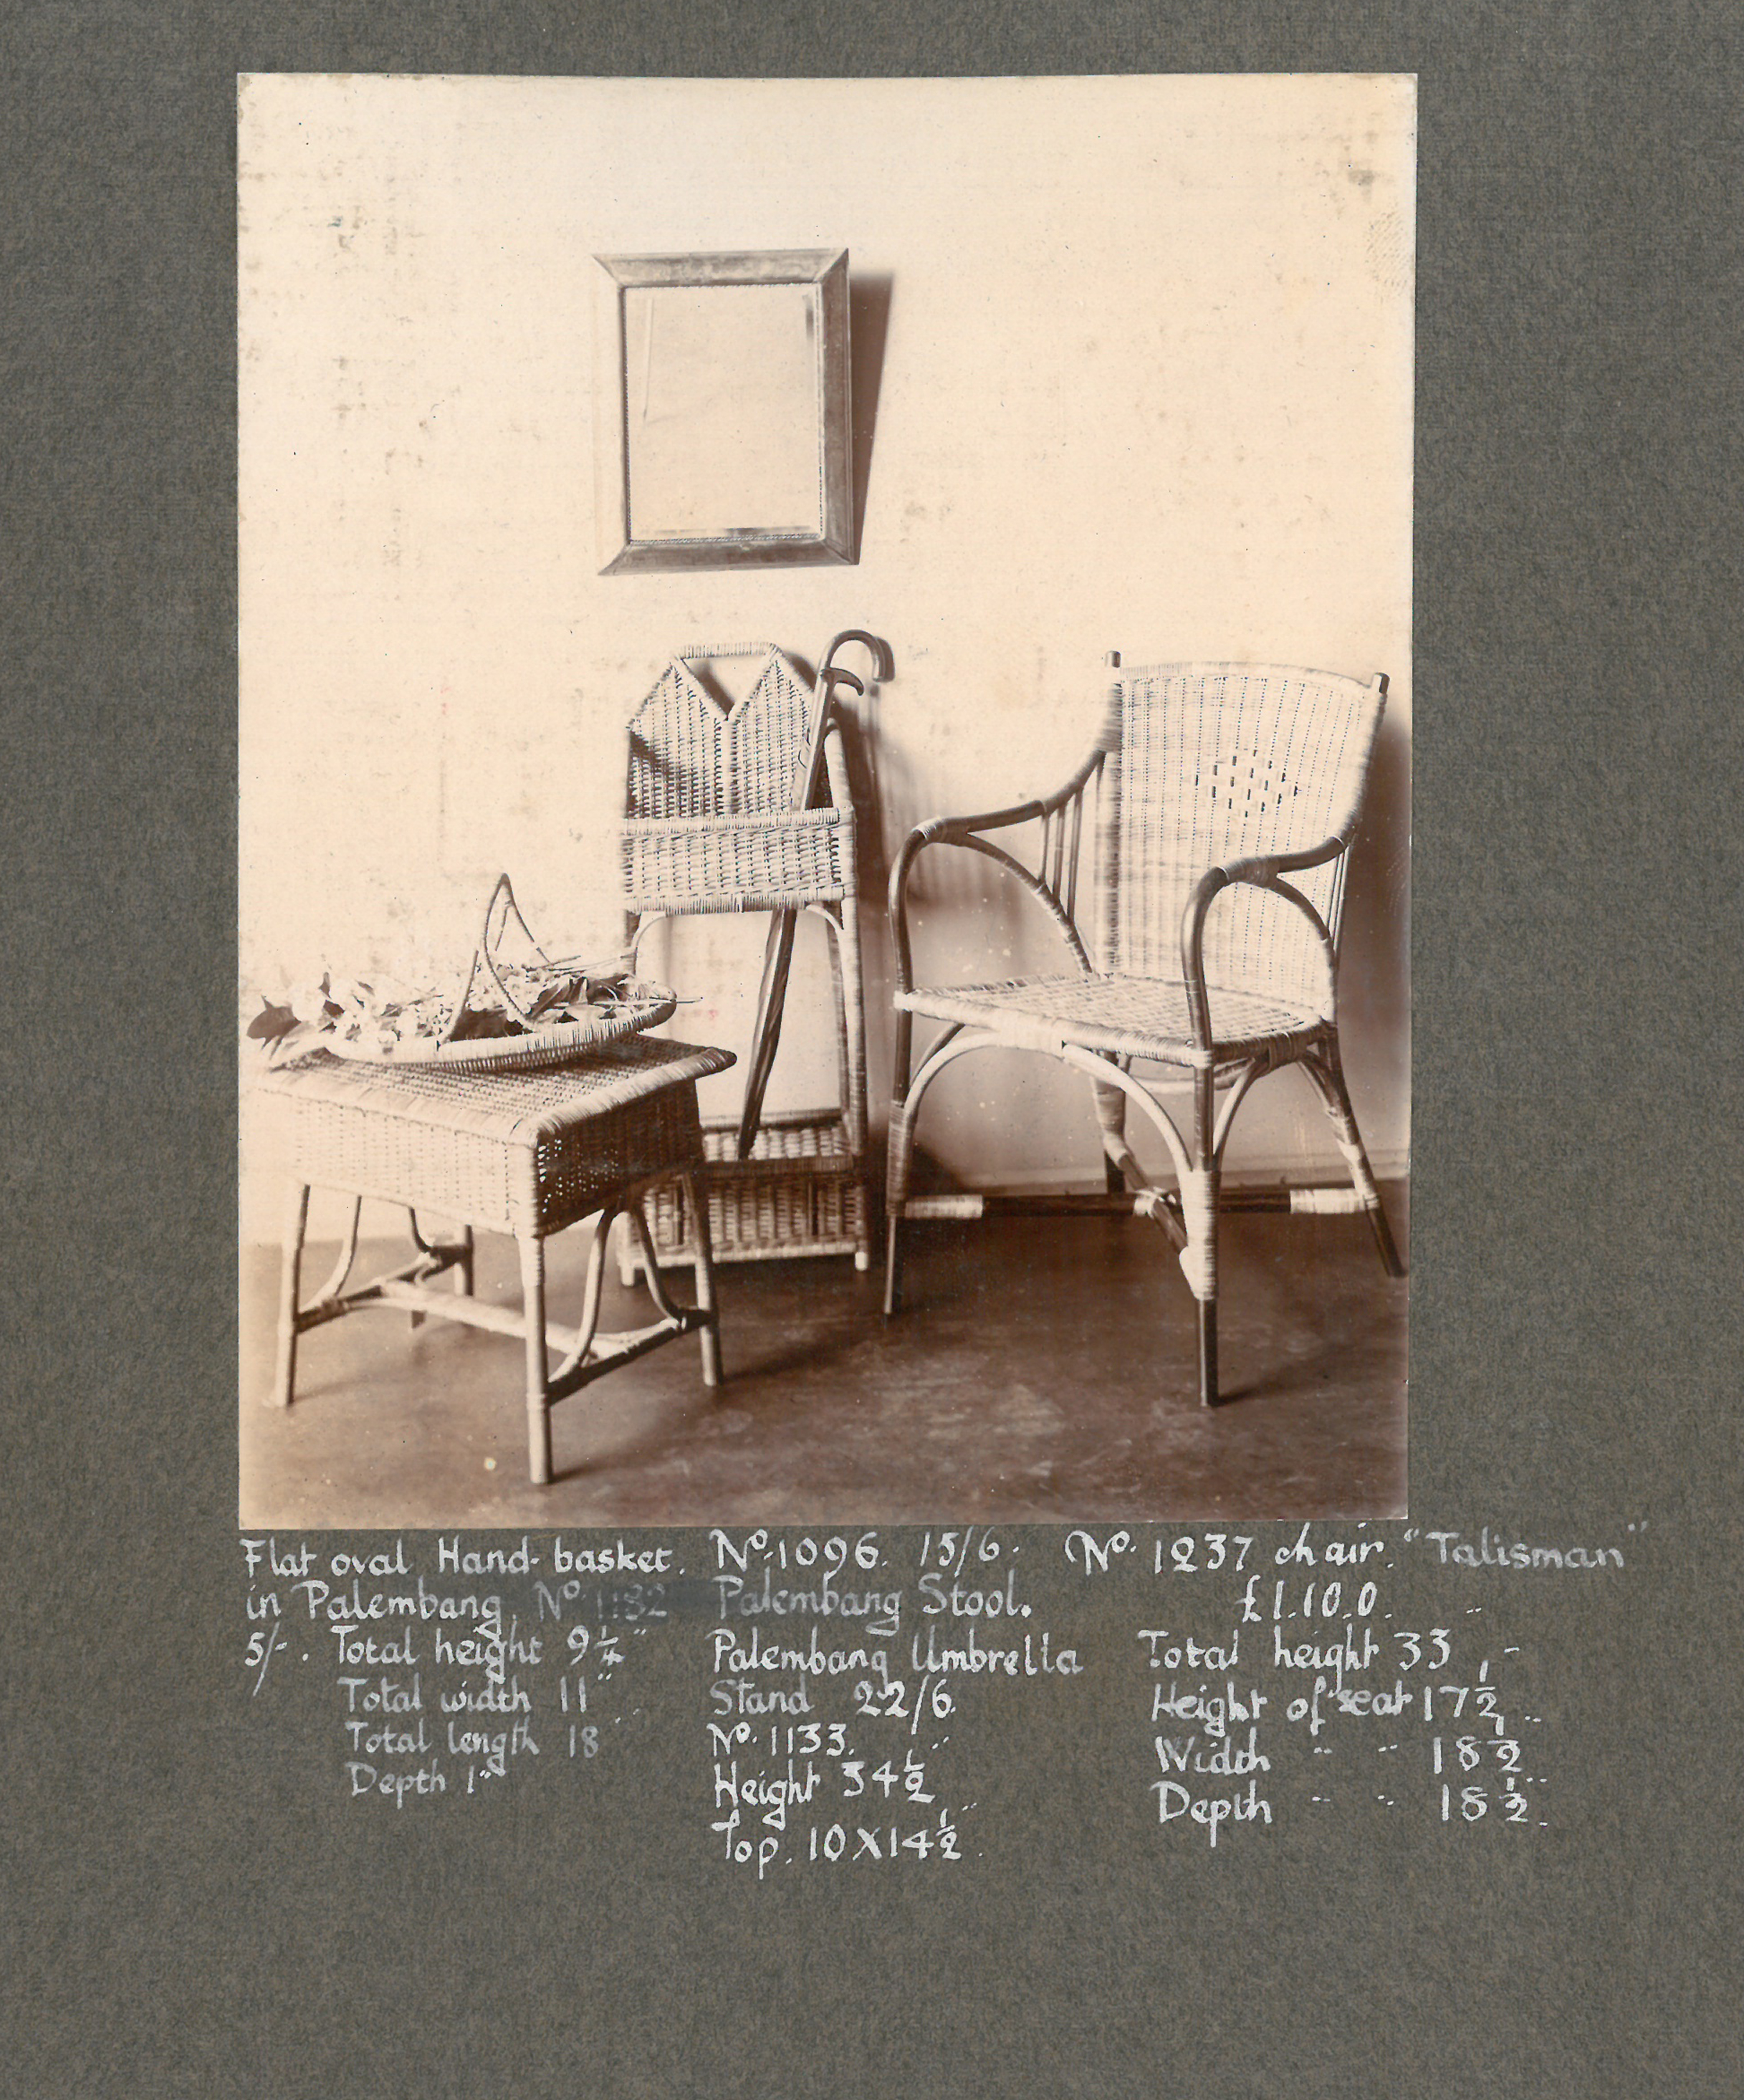 Flat oval Hand-basket.
in Palembang. No. 1182
5/-. Total height 9 1/4"
Total width 11"
Total length 18"
Depth 1"
No. 1096. 15/6.
Palembang Stool.
Palembang Umbrella
Stand 22/6.
No. 1133.
Height 34 1/2"
Top. 10 X 14 1/2".
No. 1237 chair. "Talisman"
£1.10.0.
Total height 33"
Height of seat 17 1/2"
Width " " 18 1/2"
Depth " " 18 1/2"